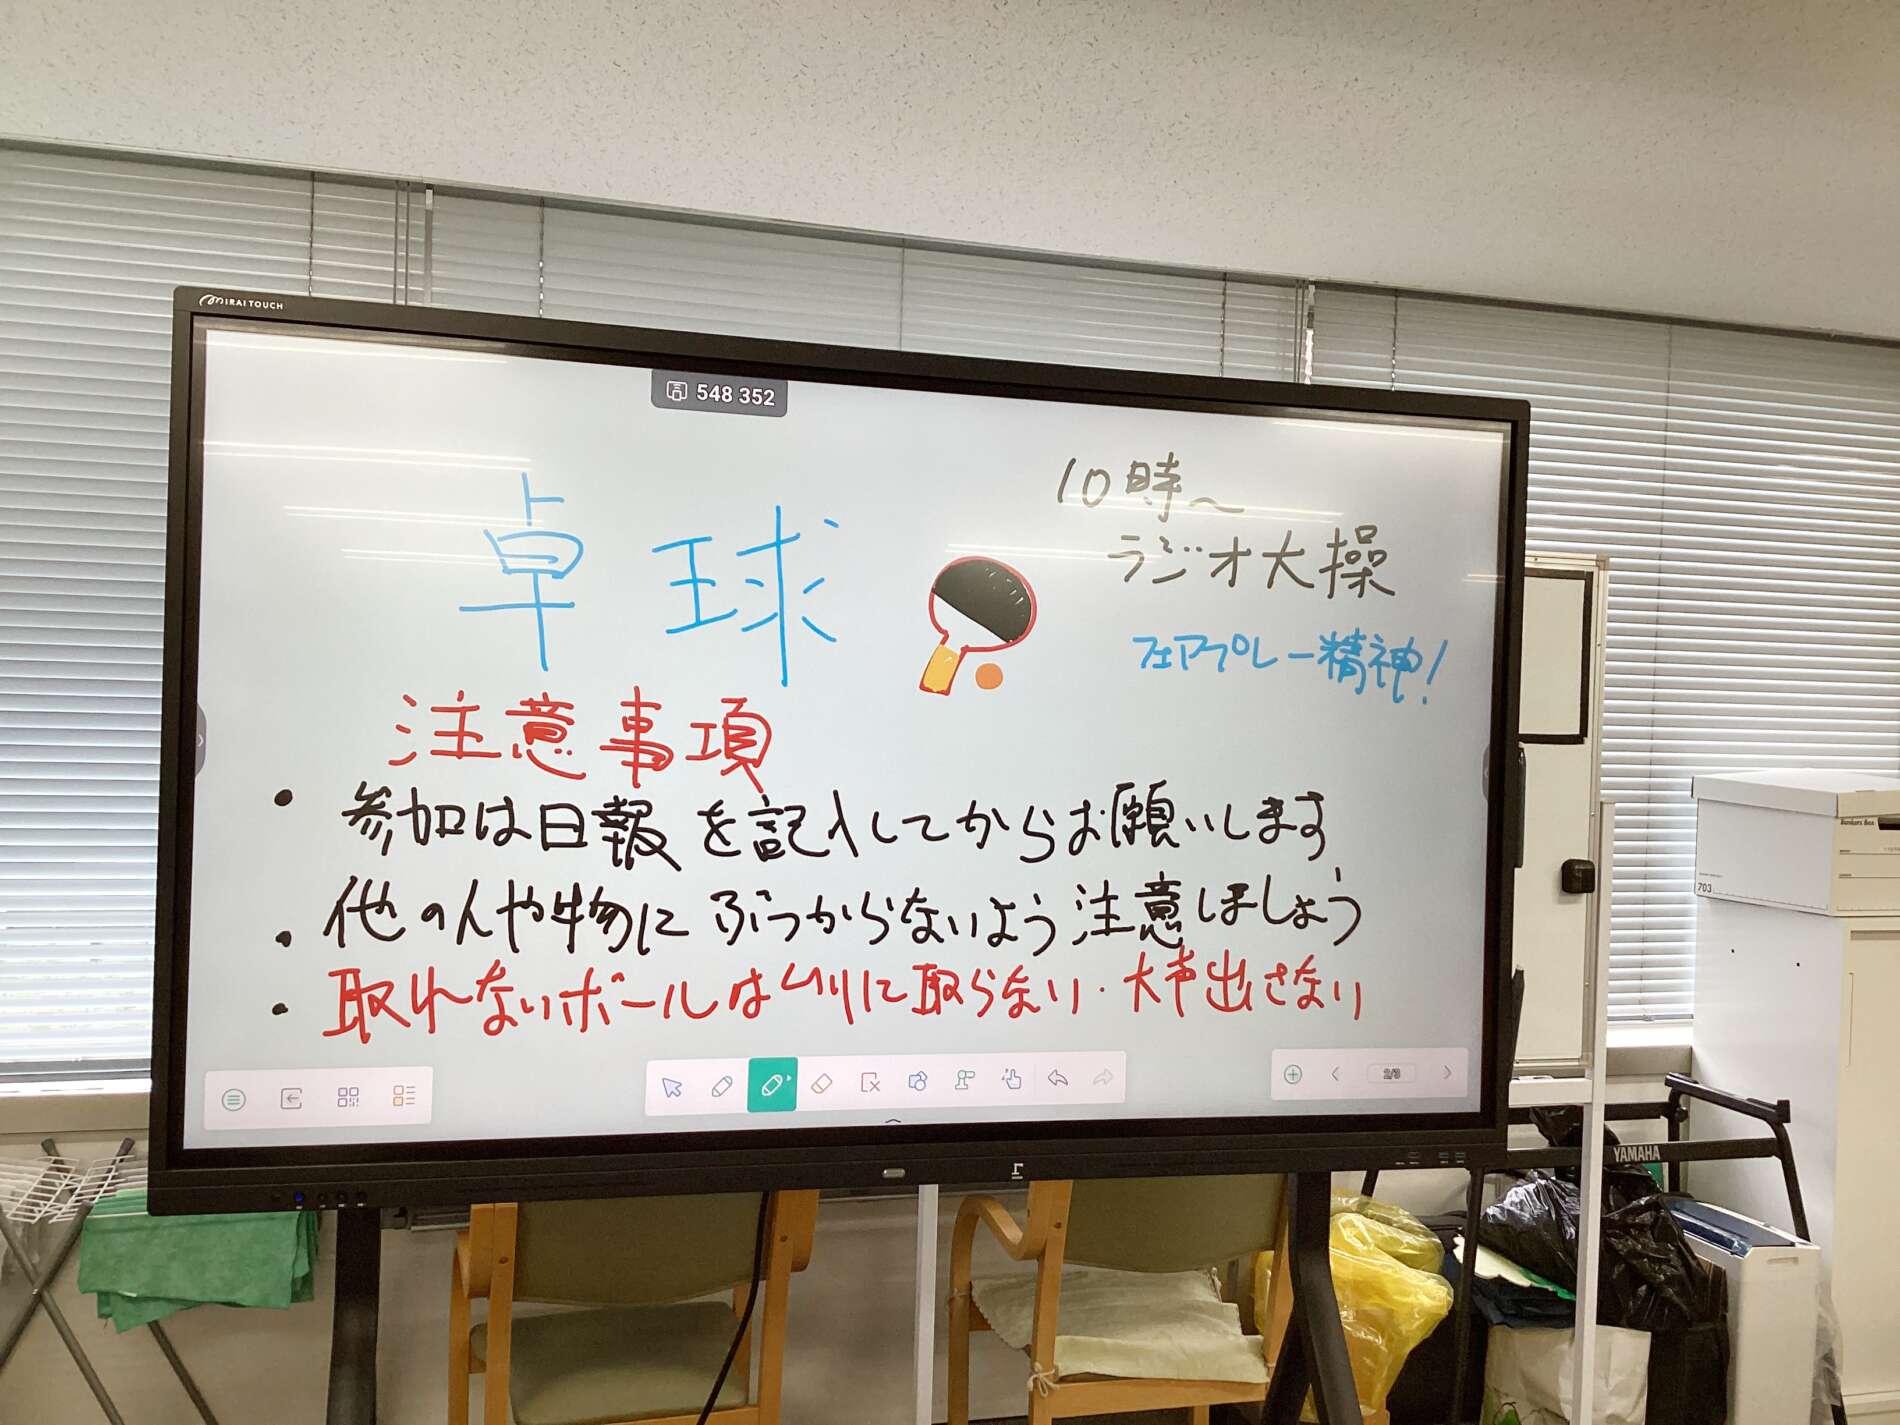 MIRAI TOUCH
548 352
10時〜
ラジオ大操
卓球
フェアプレー精神!
注意事項
・参加は日報を記入してからお願いします
・他の人や物にぶつからないよう注意しましょう
・取れないボールはムリに取らない・大声出さない
2/3
YAMAHA
Bankers Box
703